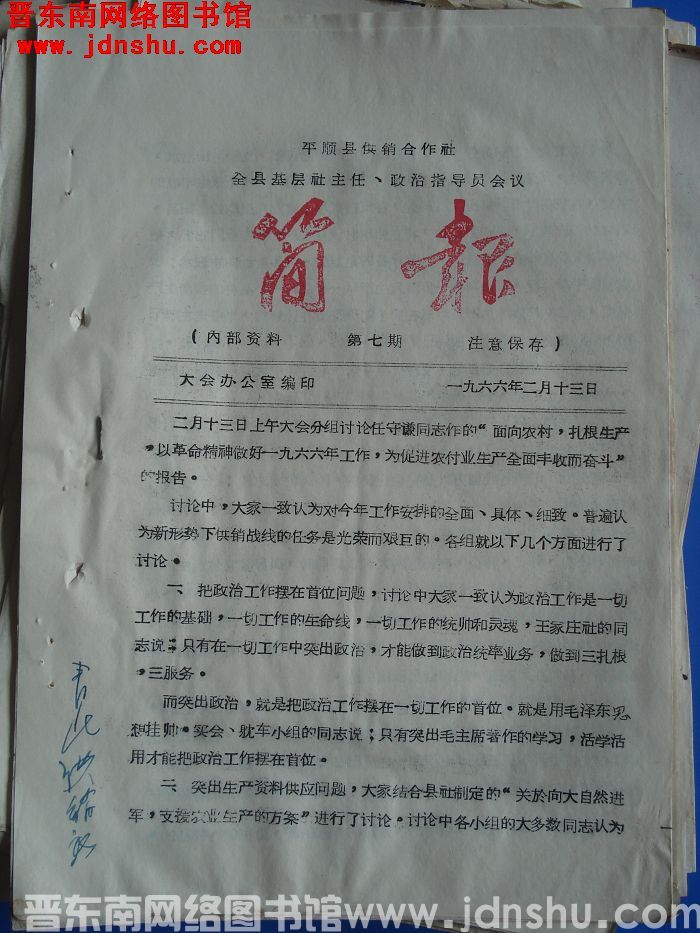 晋东南网络图书馆
www.jdnshu.com
平顺县供销合作社
全县基层社主任、政治指导员会议
简报
(內部资料 第七期 注意保存)
大会办公室编印 一九六六年二月十三日
二月十三日上午大会分组讨论任守谦同志作的“面向农村，扎根生产
，以革命精神做好一九六六年工作，为促进农付业生产全面丰收而奋斗”
的报告。
讨论中，大家一致认为对今年工作安排的全面、具体、细致。普遍认
为新形势下供销战线的任务是光荣而艰巨的。各组就以下几个方面进行了
讨论。
一、把政治工作摆在首位问题，讨论中大家一致认为政治工作是一切
工作的基础，一切工作的生命线，一切工作的统帅和灵魂，王家庄社的同
志说：只有在一切工作中突出政治，才能做到政治统率业务，做到三扎根
，三服务。
而突出政治，就是把政治工作摆在一切工作的首位。就是用毛泽东思
想挂帅。实会、躭车小组的同志说：只有突出毛主席著作的学习，活学活
用才能把政治工作摆在首位。
二、突出生产资料供应问题，大家结合县社制定的“关於向大自然进
军，支援农业生产的方案”进行了讨论。讨论中各小组的大多数同志认为
晋东南网络图书馆www.jdnshu.com